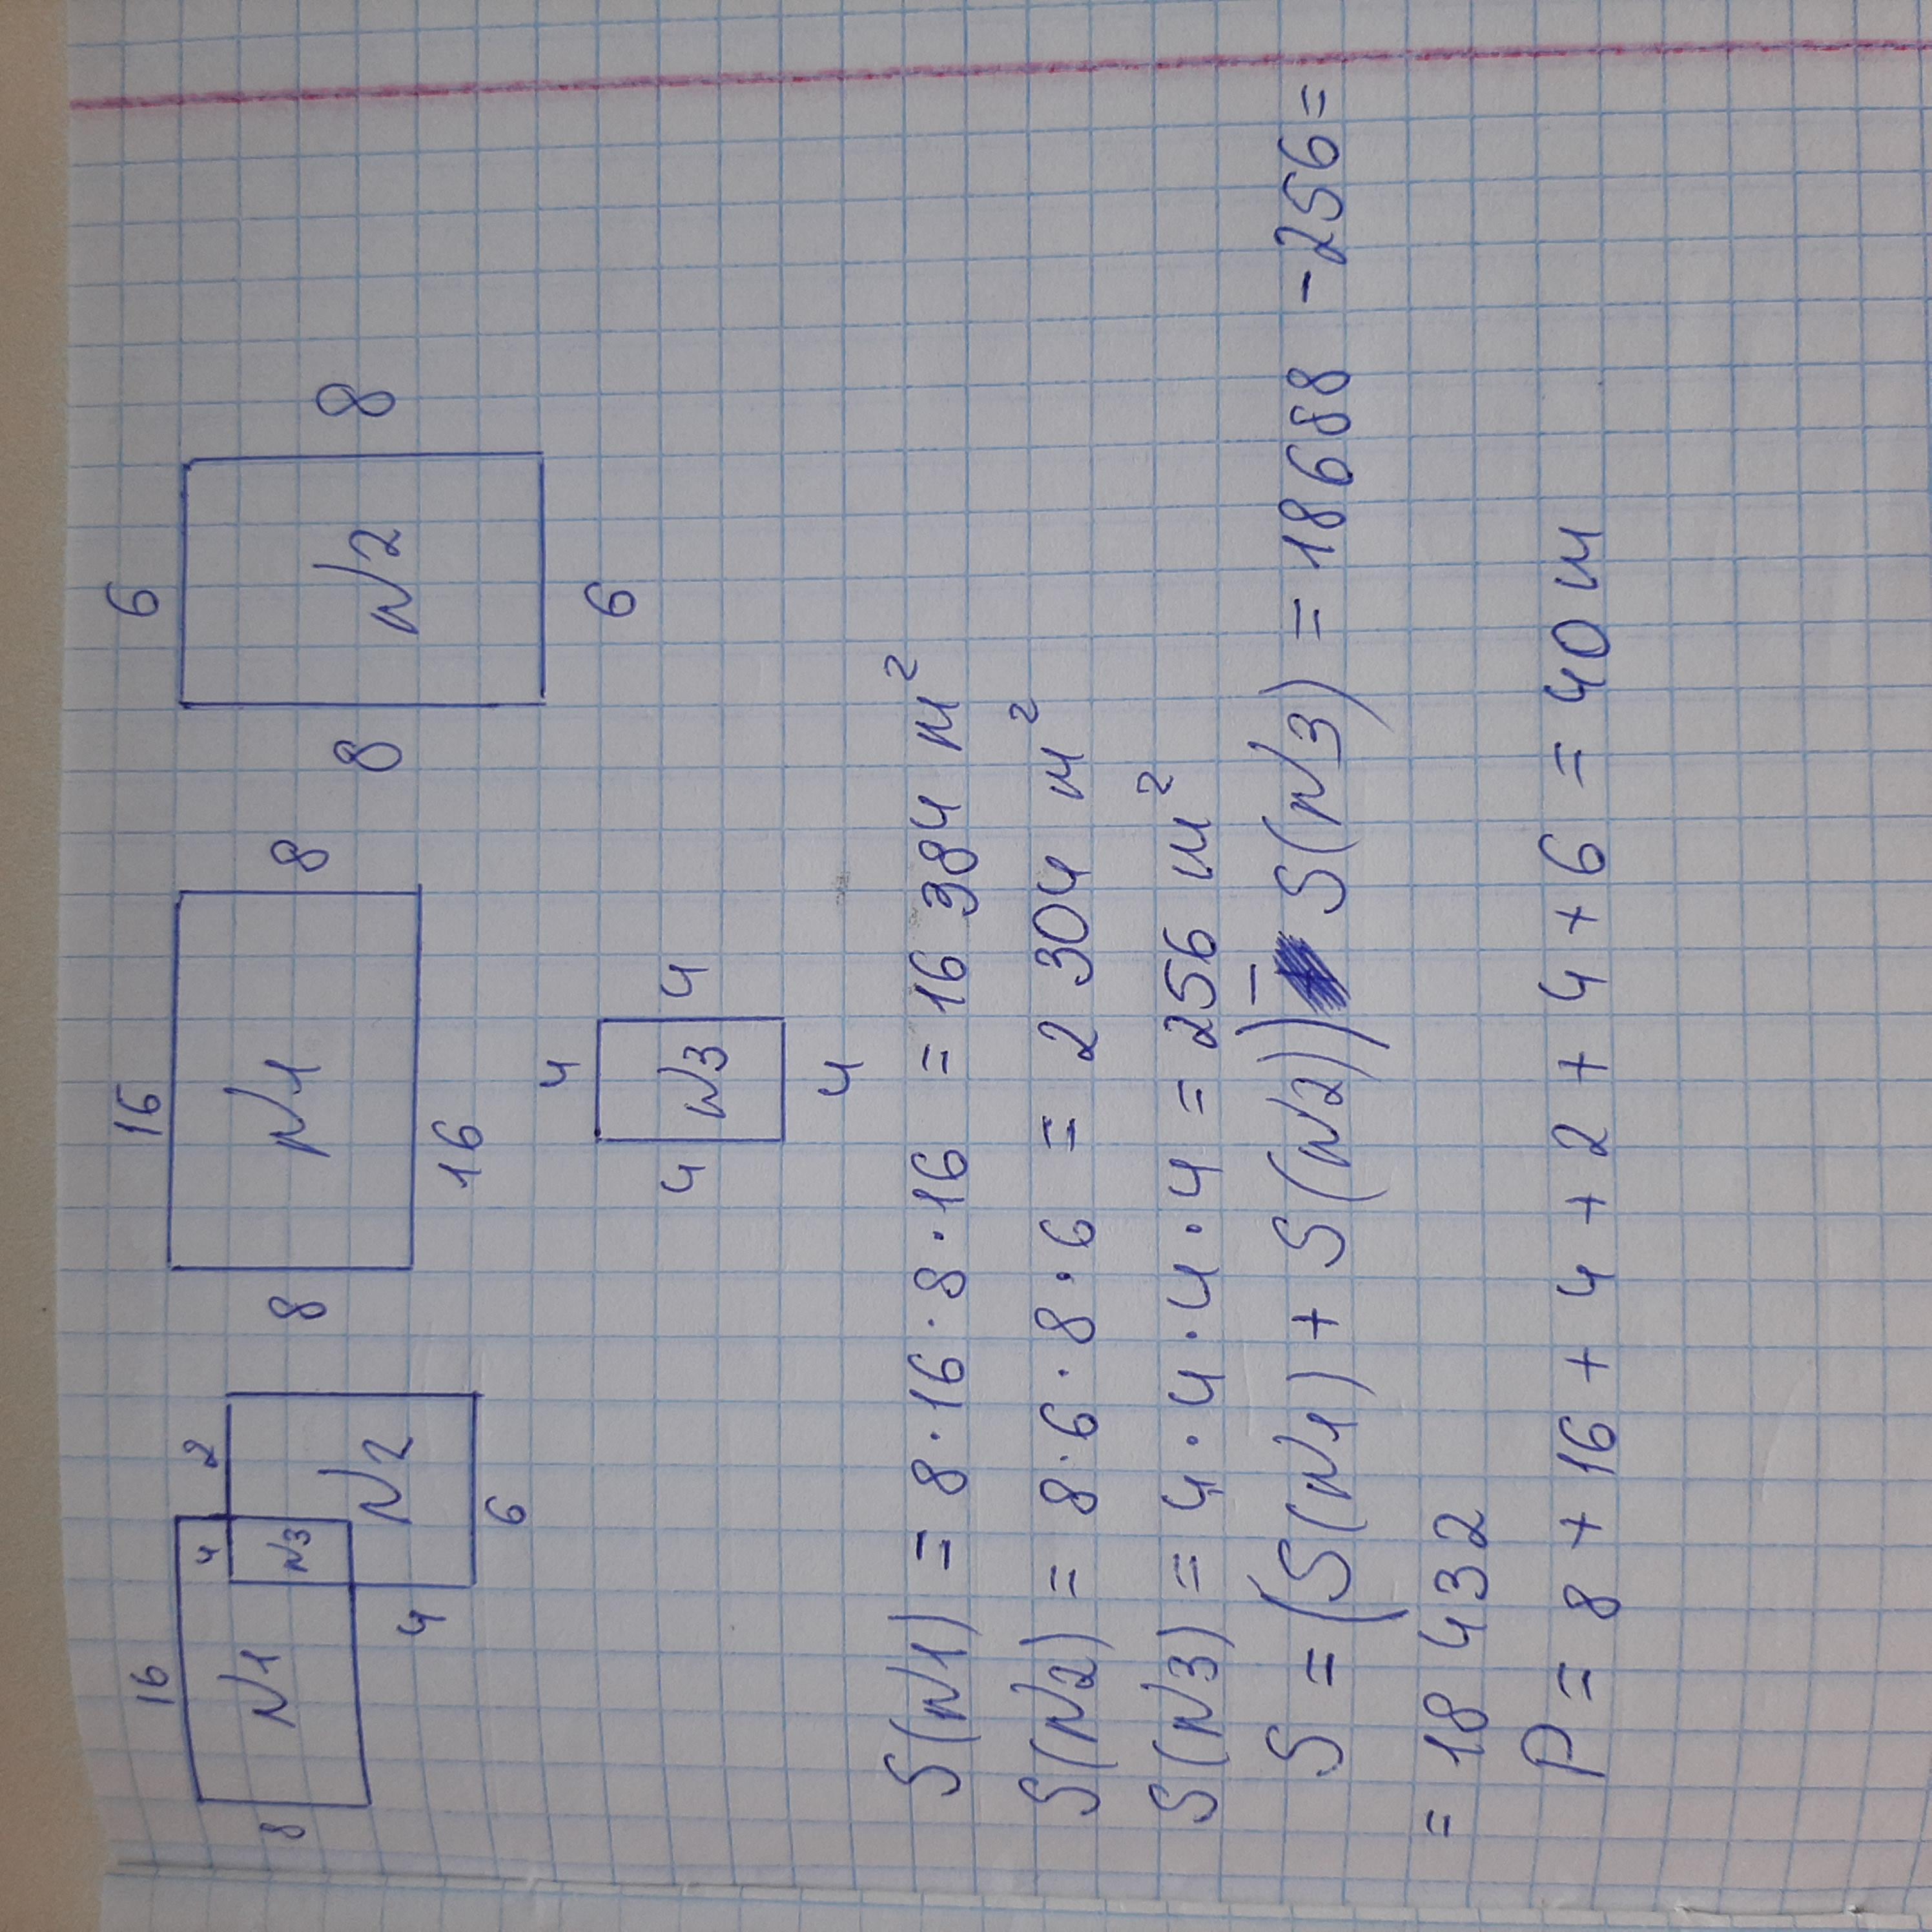 16 4 2
8 N1 N3 N2
4 6
16
8 N1 8
16
6
8 N2 8
6
4
4 N3 4
4
S(N1) = 8·16·8·16 = 16 384 м²
S(N2) = 8·6·8·6 = 2 304 м²
S(N3) = 4·4·4·4 = 256 м²
S = (S(N1) + S(N2)) - S(N3) = 18688 - 256 =
= 18 432
P = 8 + 16 + 4 + 2 + 4 + 6 = 40 м